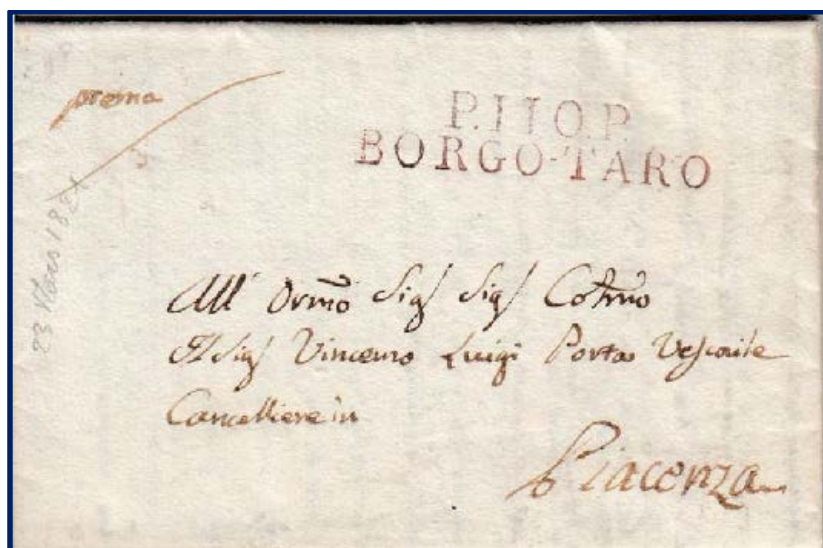 prema
P.110.P.
BORGO-TARO
23 Mars 182
All' Ormo Sig Sig Colmo
Il Sig Vincenzo Luigi Porta Vescovile
Cancelliere in
Piacenza